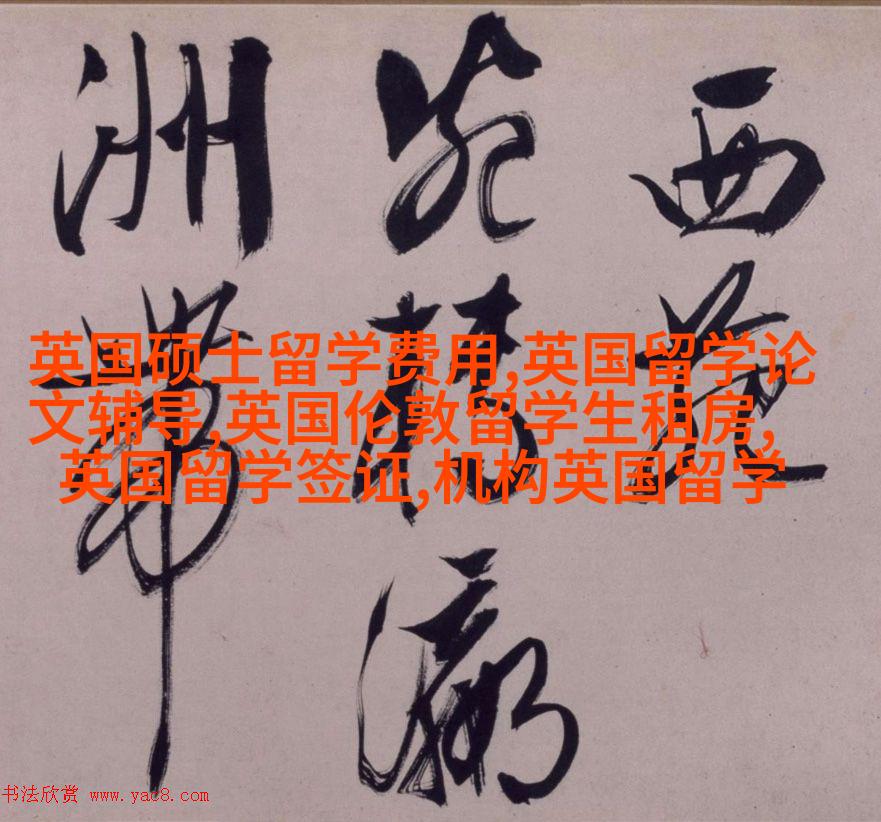 西
瀛
洲帶
英国硕士留学费用,英国留学论
文辅导,英国伦敦留学生租房,
英国留学签证,机构英国留学
书法欣赏 www.yac8.com